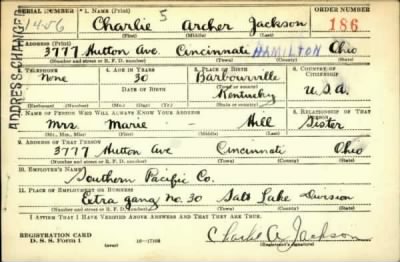 SERIAL NUMBER 1. NAME (Print) ORDER NUMBER
1456 Charlie 5 Archer Jackson 186
(First) (Middle) (Last)
ADDRESS CHANGE
2. ADDRESS (Print)
3777 Hutton Ave. Cincinnati HAMILTON Ohio
(Number and street or R. F. D. number) (Town) (County) (State)
3. TELEPHONE 4. AGE IN YEARS 5. PLACE OF BIRTH 6. COUNTRY OF CITIZENSHIP
None 30 Barbourville
DATE OF BIRTH (Town or county)
Kentucky U.S.A.
(Exchange) (Number) (Mo.) (Day) (Yr.) (State or country)
7. NAME OF PERSON WHO WILL ALWAYS KNOW YOUR ADDRESS 8. RELATIONSHIP OF THAT PERSON
Mrs. Marie - Hill Sister
(Mr., Mrs., Miss) (First) (Middle) (Last)
9. ADDRESS OF THAT PERSON
3777 Hutton Ave Cincinnati Ohio
(Number and street or R. F. D. number) (Town) (County) (State)
10. EMPLOYER'S NAME
Southern Pacific Co.
11. PLACE OF EMPLOYMENT OR BUSINESS
Extra gang No. 30 Salt Lake Division
(Number and street or R. F. D. number) (Town) (County) (State)
I AFFIRM THAT I HAVE VERIFIED ABOVE ANSWERS AND THAT THEY ARE TRUE.
REGISTRATION CARD
D. S. S. Form 1 (over) 16—17105 Charlie A. Jackson
(Registrant's signature)